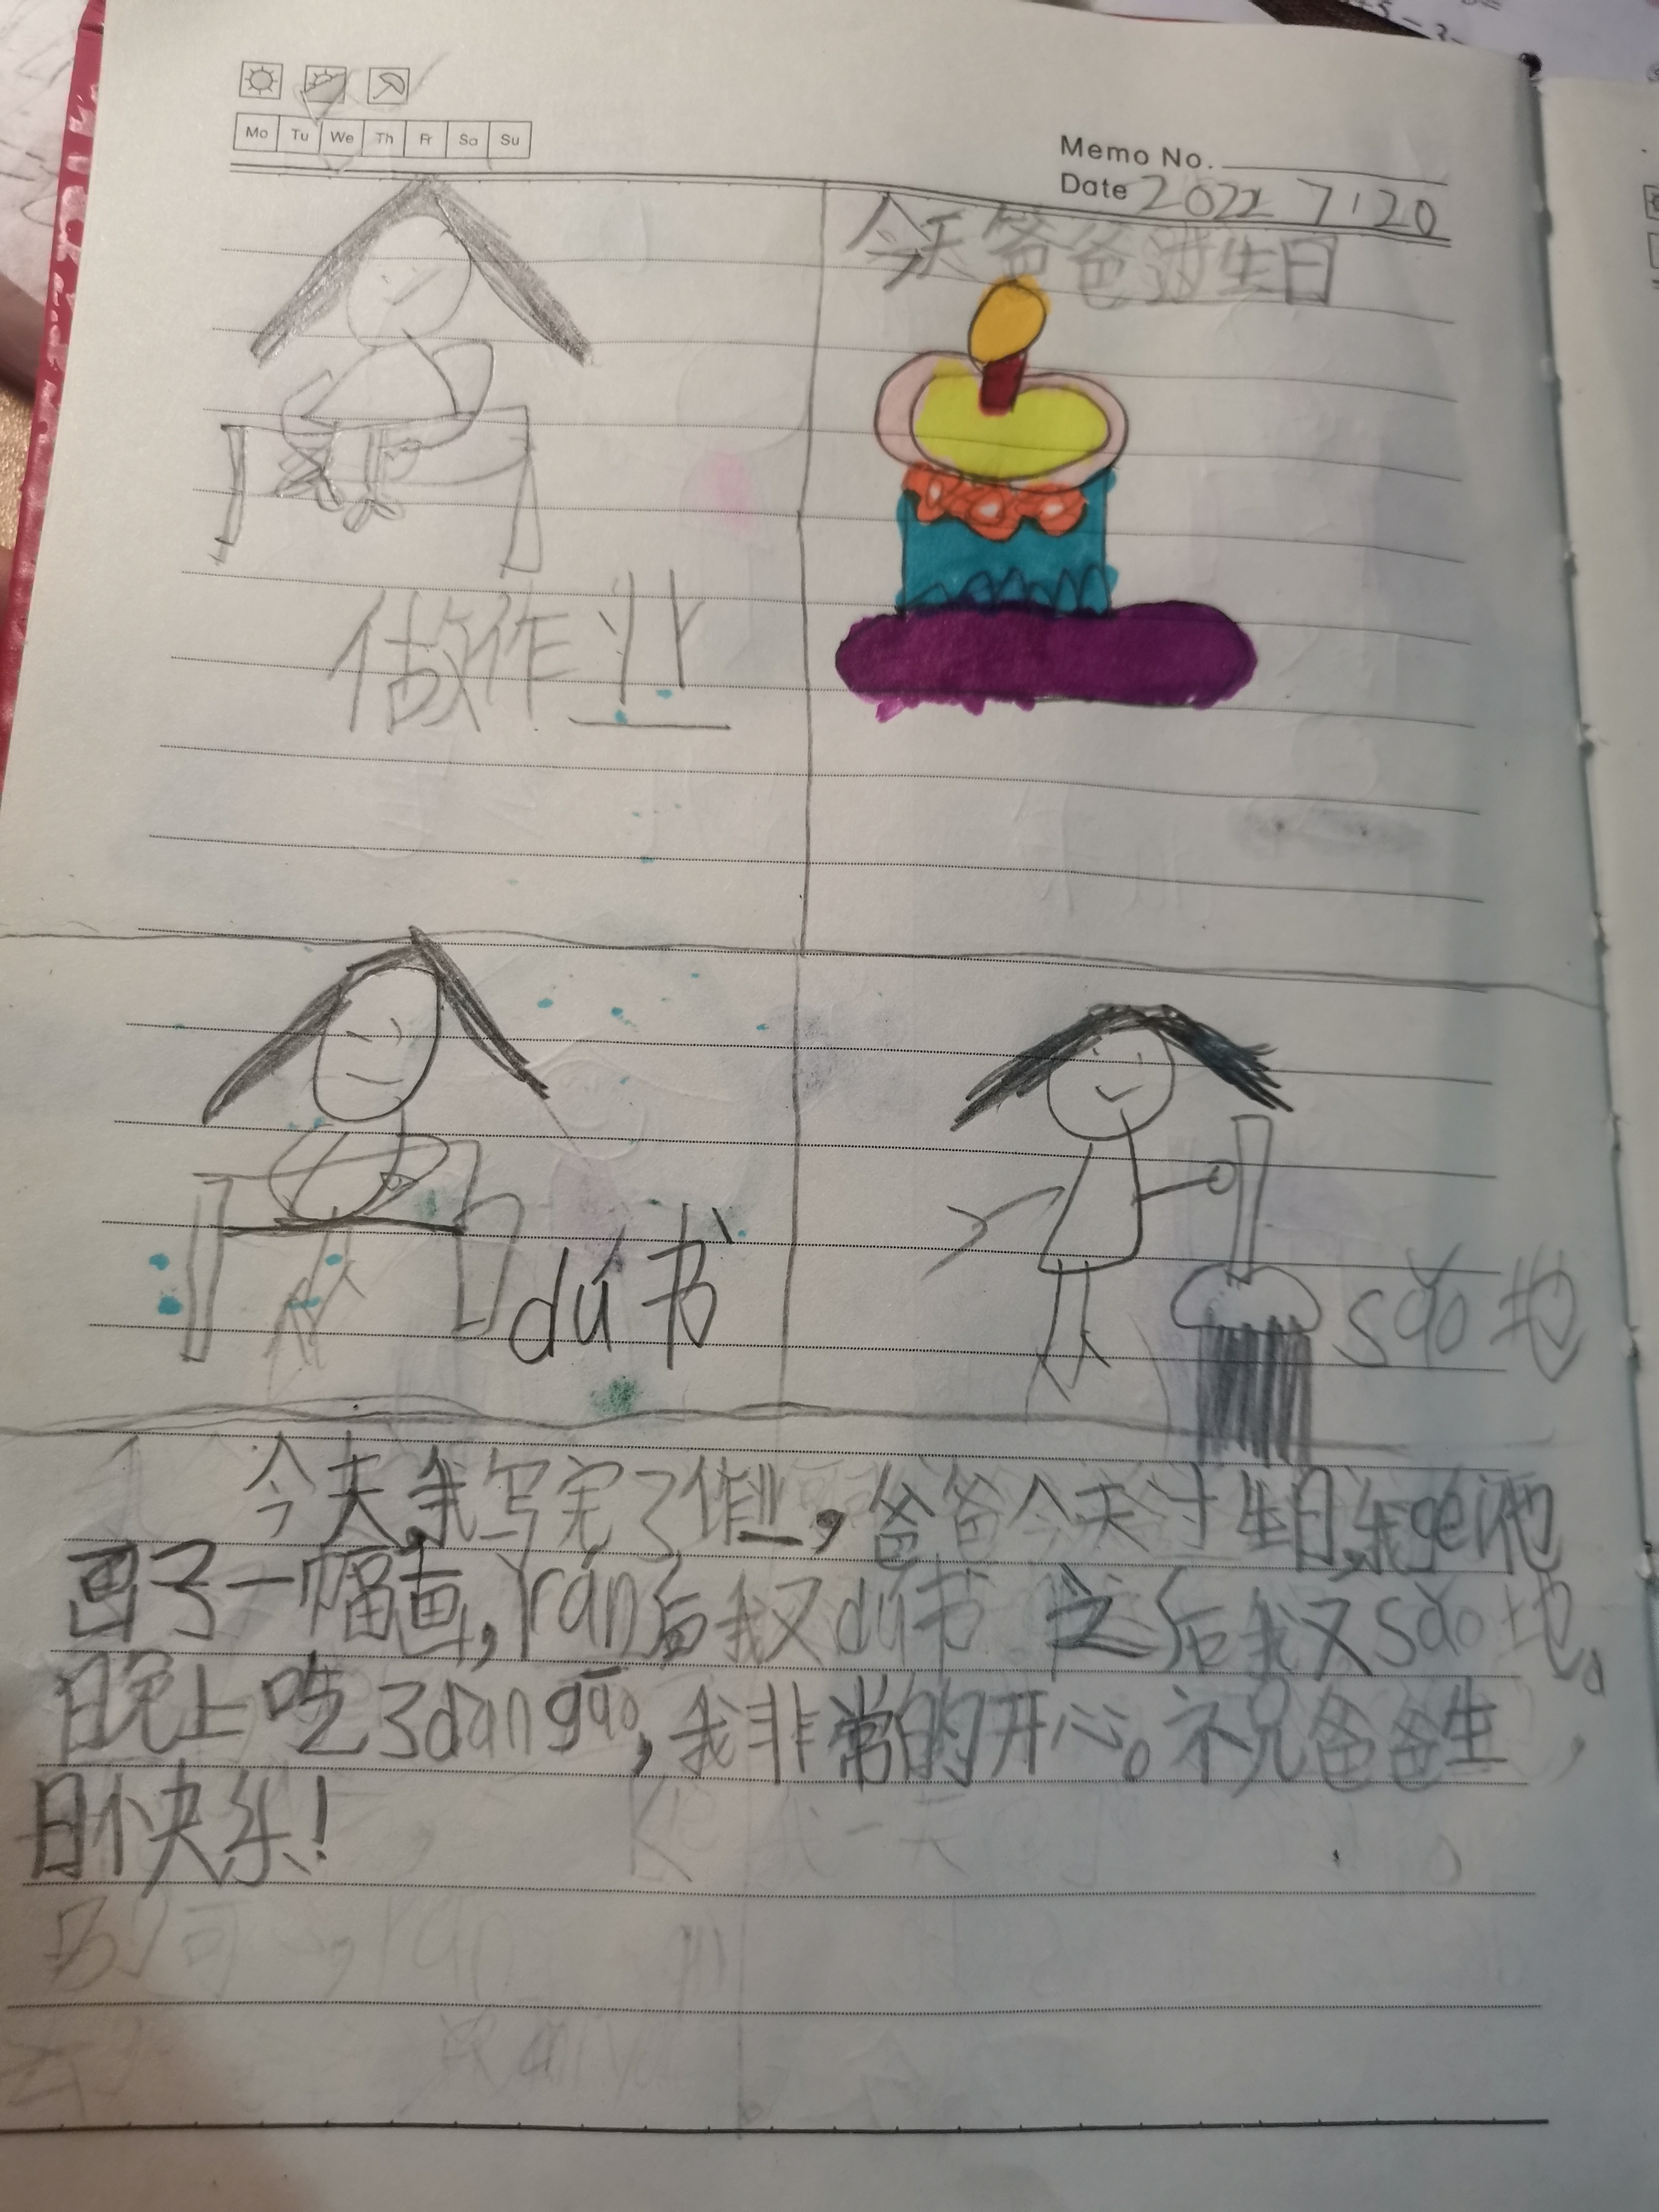 Mo Tu We Th Fr Sa Su
Memo No.
Date 2022 7.20
今天爸爸过生日
做作业
dú书
sǎo地
今天我写完了作业，爸爸今天过生日，我gěi他
画了一幅画，rán后我又dú书 之后我又sǎo地。
晚上吃了dàn gāo，我非常的开心。祝爸爸生
日快乐！